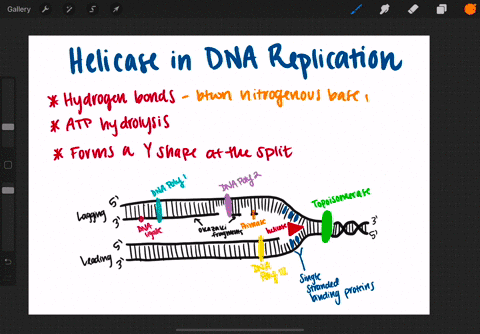 Gallery
Helicase in DNA Replication
* Hydrogen bonds - btwn nitrogenous base
* ATP hydrolysis
* Forms a Y shape at the split
DNA Poly 1
DNA Poly 2
Topoisomerase
5'
Lagging
3'
DNA ligase
okazaki fragments
Primase
helicase
3'
5'
5'
Leading
3'
DNA Poly III
Single
stranded
binding proteins